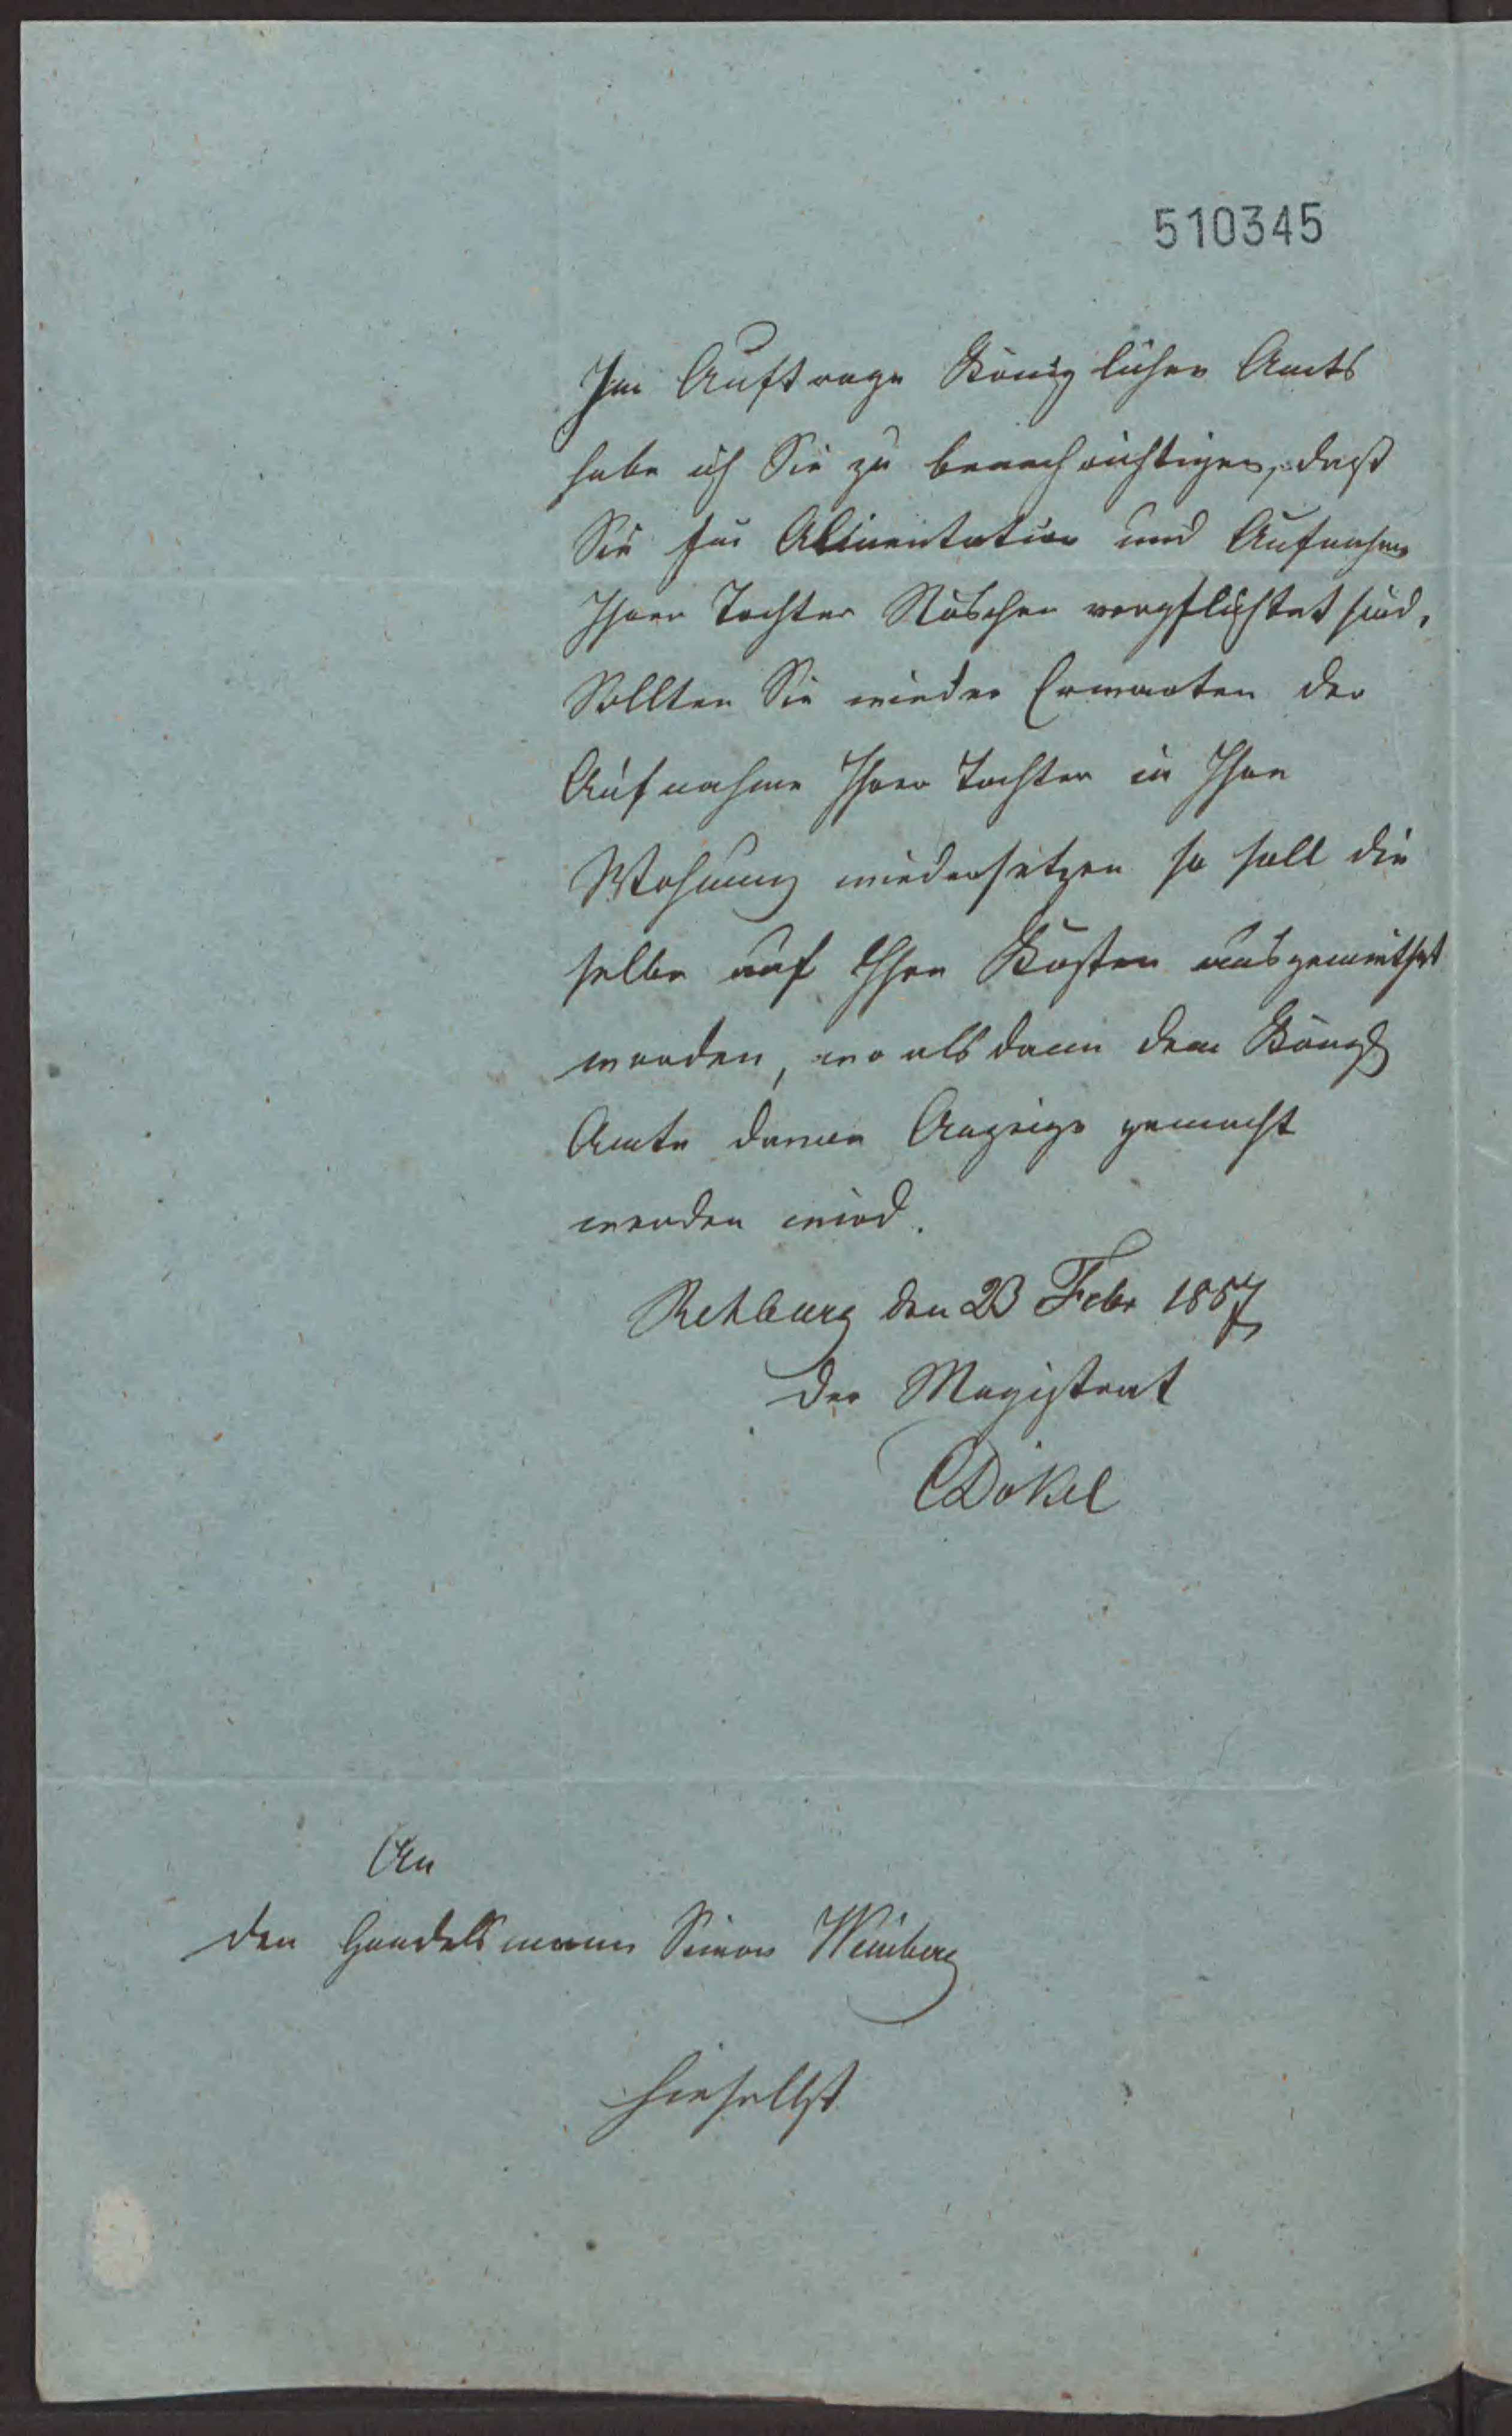 510345
Im Auftrage Königlichen Amts
habe ich Sie zu benachrichtigen, daß
Sie für Alimentation und Aufnahme
Ihrer Tochter Röschen verpflichtet sind.
Sollten Sie wieder Erwarten der
Aufnahme Ihrer Tochter in Ihre
Wohnung wiedersetzen so soll die
selbe auf Ihre Kosten ausgemiethet
werden, wo alsdann dem Köngl
Amte davon Anzeige gemacht
werden wird.
Rehburg den 23 Febr 1857
Der Magistrat
CDökel
An
den Handelsmann Simon Weinberg
hieselbst